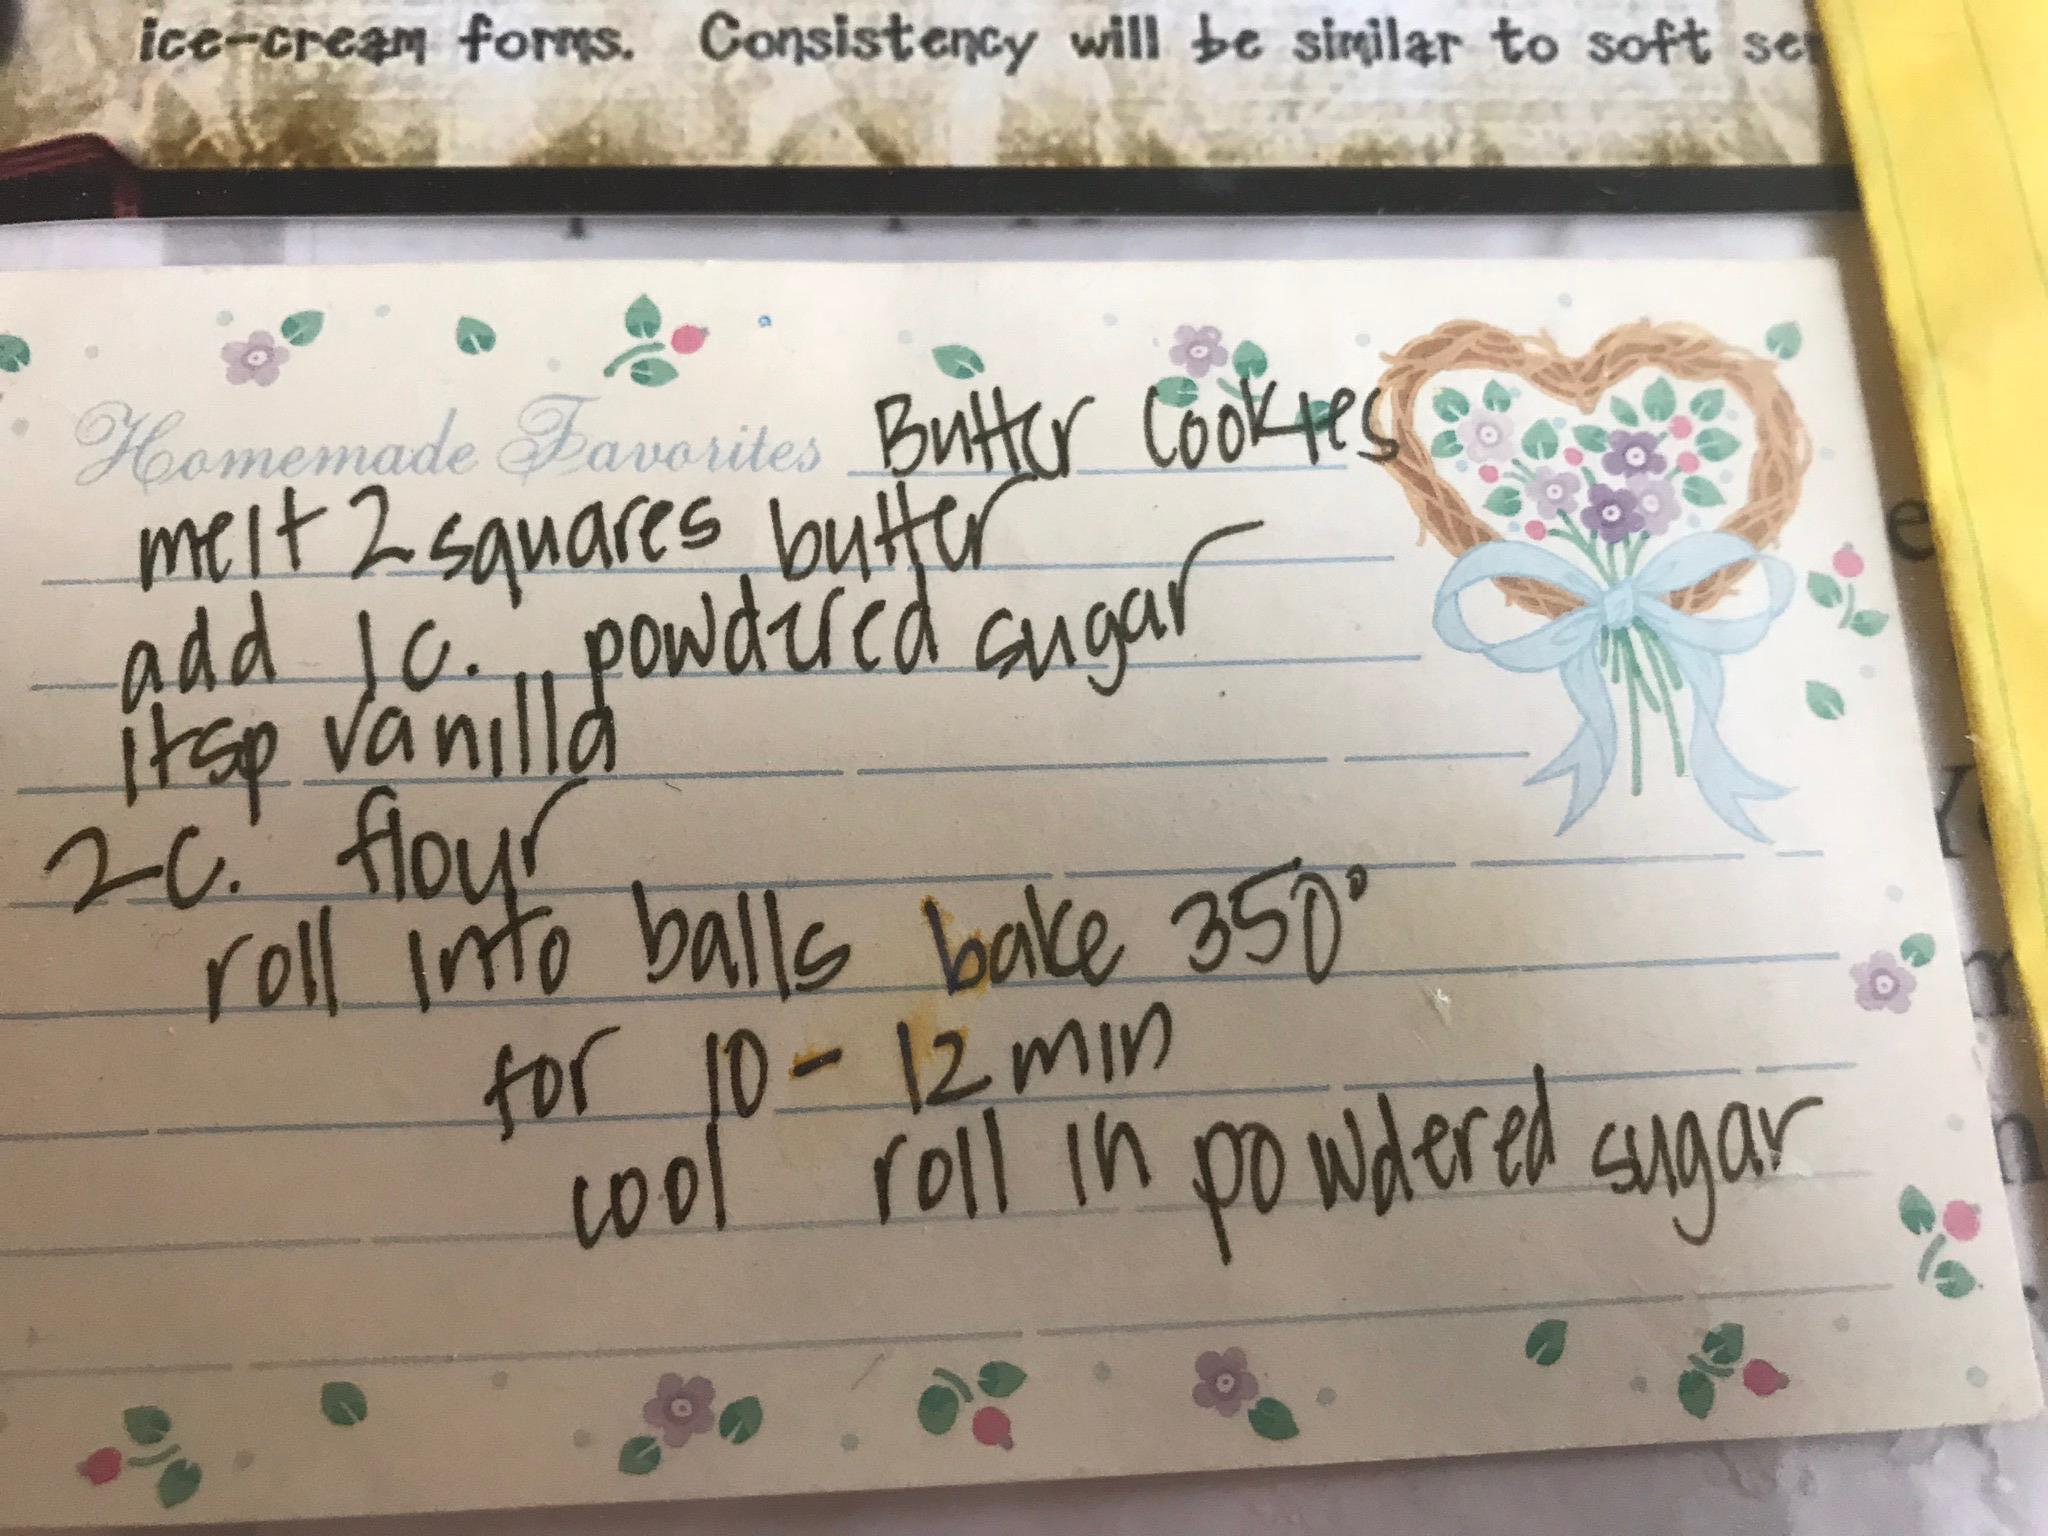 ice-cream forms. Consistency will be similar to soft
Homemade Favorites Butter Cookies
melt 2 squares butter
add 1c. powdered sugar
1tsp vanilla
2c. flour
roll into balls bake 350°
for 10-12 min
cool roll in powdered sugar